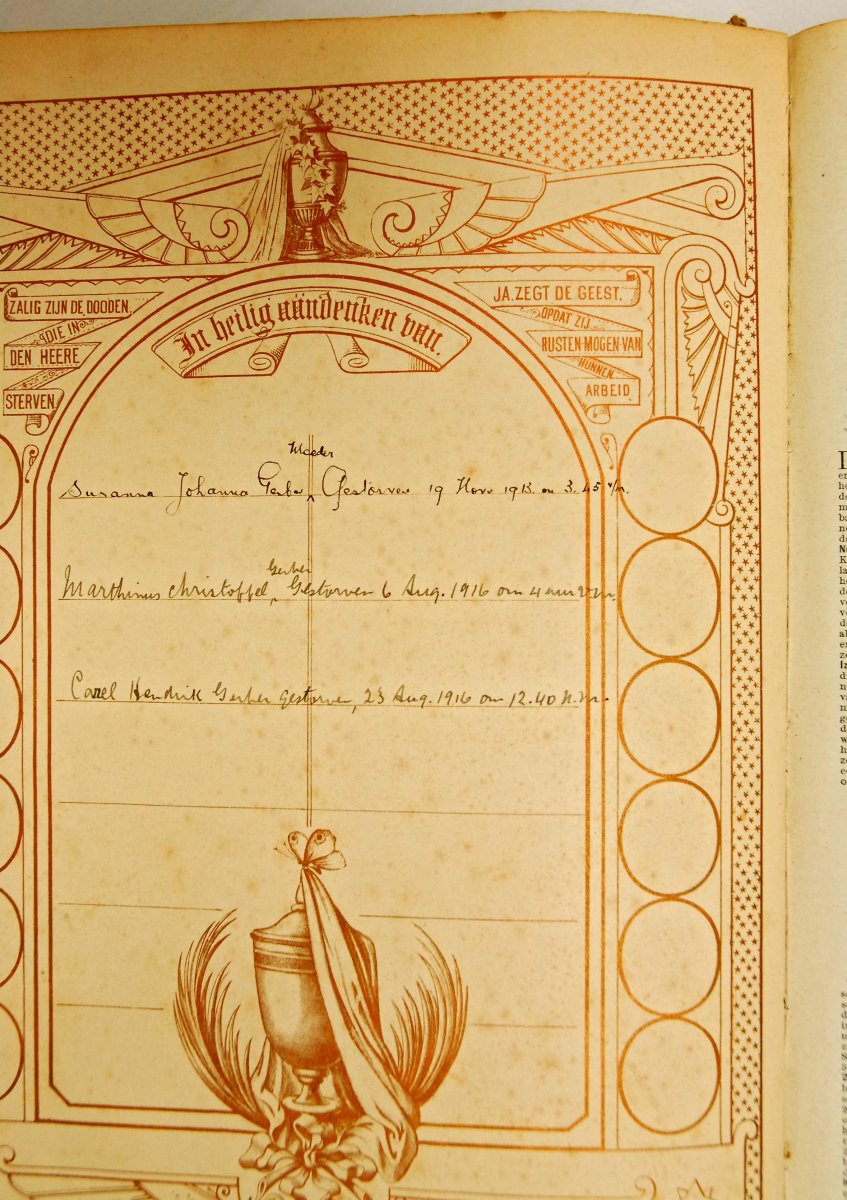 ZALIG ZIJN DE DOODEN.
DIE IN
DEN HEERE
STERVEN.
In heilig aandenken van.
JA. ZEGT DE GEEST.
OPDAT ZIJ
RUSTEN MOGEN VAN
HUNNEN
ARBEID.
Moeder
Susanna Johanna Gerber, Gestorven 19 Nov 1913. om 3.45 v/m.
Gerber
Marthinus Christoffel, Gestorven 6 Aug. 1916 om 4 uur v.m.
Carel Hendrik Gerber gestorven, 23 Aug. 1916 om 12.40 n.m.